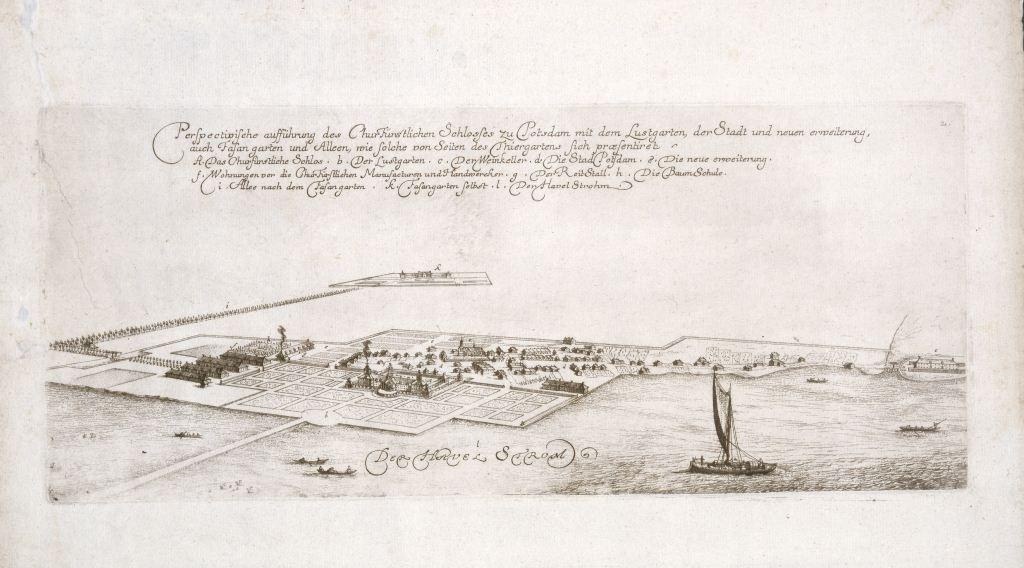 Perspectivische aufführung des ChurFürstlichen Schlosses zu Potsdam mit dem Lustgarten, der Stadt und neuen erweiterung,
auch Fasan garten und Alleen, wie solche von Seiten des Thiergartens sich præsentiret.
A. Das Churfürstliche Schlos . b . Der Lustgarten . c . Der Weinkeller . d . Die Stad Potsdam . e . Die neue erweiterung .
f . Wohnungen vor die ChurFürstlichen Manufacturen und Handwercker . g . Der Reit Stall . h . Die Baum Schule .
i . Allee nach dem Fasangarten . k . Fasangarten selbst . l . Der Havel Strohm
k
i
l
DER HAVEL STROM